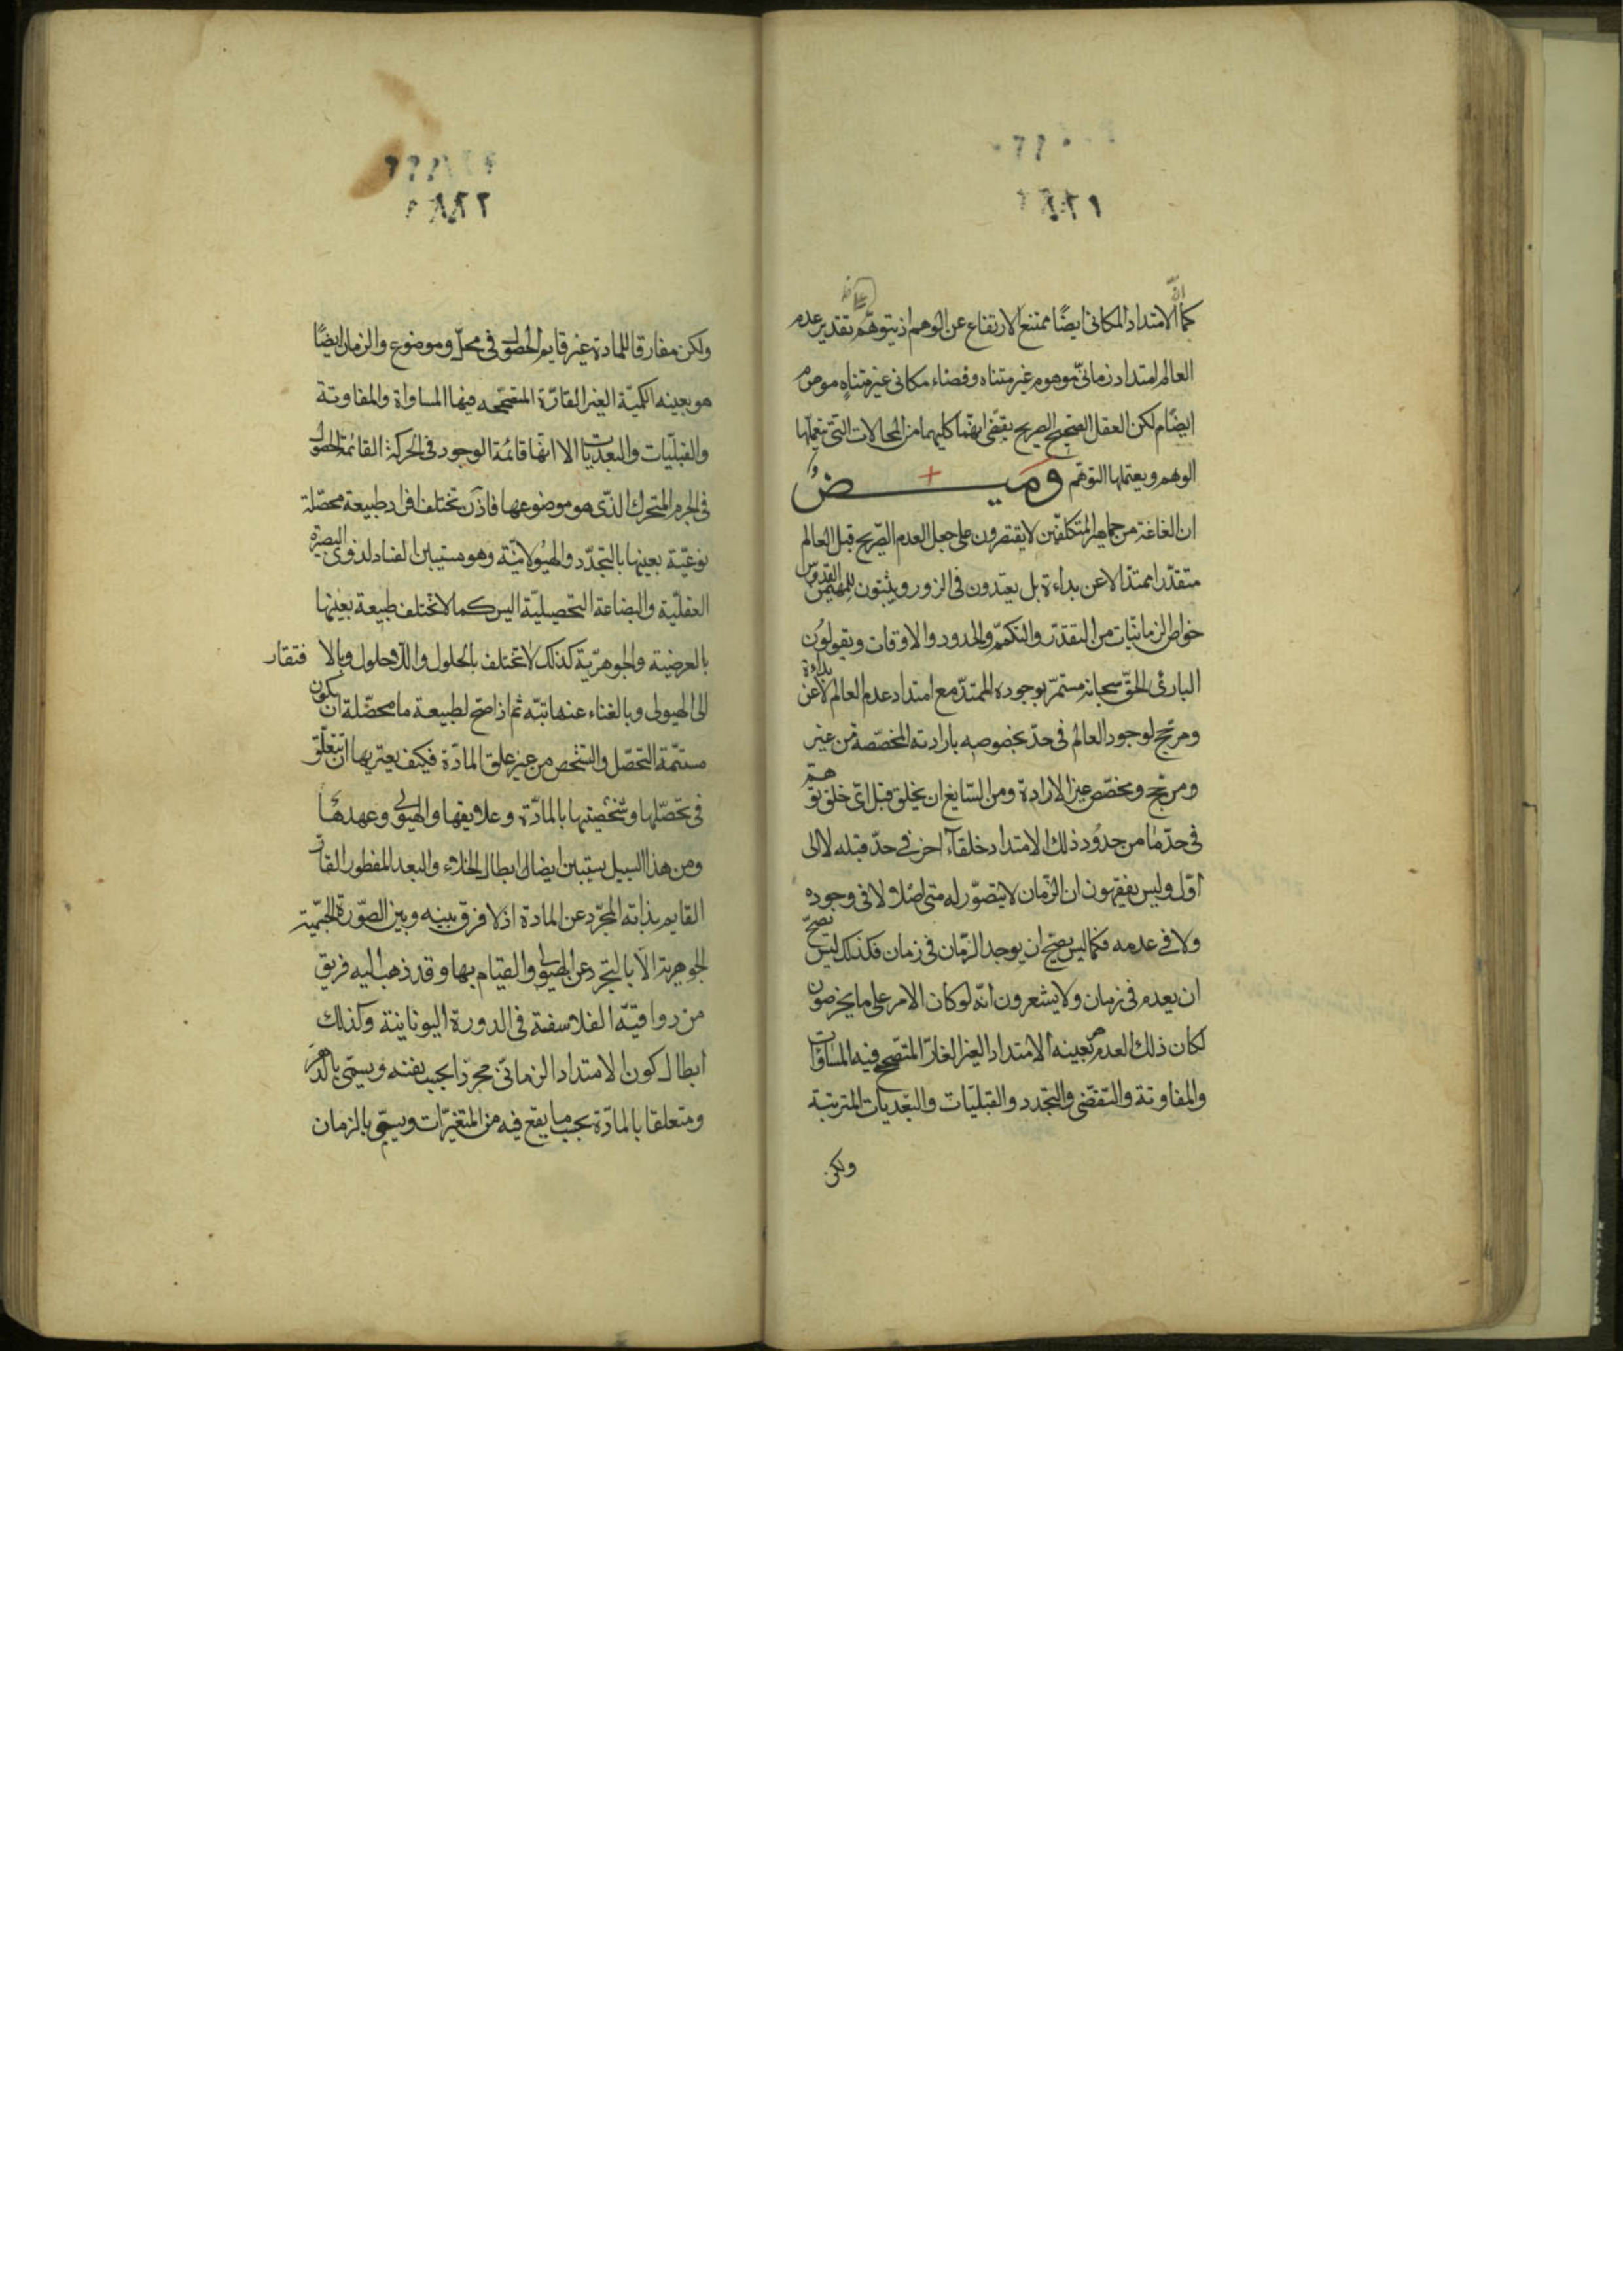 كما ان الامتداد المكانى ايضًا ممتنع الارتفاع عن الوهم اذ يتوهّم تقدير عدم
العالم امتداد زمانىّ موهوم غير متناه وفضاء مكانى غير متناهٍ موهوم
ايضًا لكن العقل الصّحيح الصريح يقضى انهما كليهما من المحالات التى
الوهم ويعتملها التوهّم وَميــــضٌ
ان الغاغة من جماهير المتكلّفين لا يقتصرون على جعل العدم الصّريح قبل العالم
متقدّرا ممتدّا لا عن بداءة بل يعتدون فى الزور ويثبتون للمهيمن القدوّس
خواصّ الزمانيّات من التقدّر والتكمّم والحدود والاوقات ويقولُون
البارئ الحقّ سبحانه مستمرّ بوجوده الممتدّ مع امتداد عدم العالم لا عن بداءة
ومرجّح لوجود العالم فى حدّ بخصوصه بارادته المخصّصة من غير
مرجّح ومخصّص غير الارادة ومن السّايغ ان يخلق قبل اىّ خلق توهّم
فى حدّ مّا من حدُود ذلك الامتداد خلقًا آخر فى حدّ قبله لا الى
اوّل وليس يفقهون ان الزّمان لا يتصوّر له متى اصلا لا فى وجوده
ولا فى عدمه فكما ليس يصحّ ان يوجد الزّمان فى زمان فكذلك ليس يصحّ
ان يعدم فى زمان ولا يشعرون انّه لو كان الامر على ما يخرصون
لكان ذلك العدم بعينه الامتداد الغير القارّ المتصحّح فيه المساوات
والمفاوتة والتقضّى والتجدد والقبليّات والبعّديات المترتبة
ولكن
ولكن مفارقا للمادة غير قايم الحصول فى محلّ وموضوع والزمان ايضًا
هو بعينه الكميّة الغير القارّة المتصحّحه فيها المساواة والمفاوتة
والقبليّات والبعديّات الا انّها قائمُة الوجود فى الحركة القائمة الحصول
فى الجرم المتحرك الذّى هو موضوعها فاذن تختلف افراد طبيعة محصّلة
نوعيّة بعينها بالتجدّد والهيُولانيّة وهو مستبين الفساد لذوى البصيرة
العقليّة والبضاعة التحصيليّة اليس كما لا تختلف طبيعة بعينها
بالعرضية والجوهرّية كذلك لا تختلف بالحلول واللاحلول وبالا فتقار
الى الهيولى وبالغناء عنها بتّه ثم اذا صحّ لطبيعة ما محصّلة ان يكون
مستتمّة التحصّل والتشّخص من غير علق المادّة فكيف يعتريها ان تتعلّق
فى تحصّلها وتشخّصيّتها بالمادّة وعلايقها والهيُولى وعهدها
ومن هذا السبيل يستبين ايضا ابطال الخلاء والبعد المفطور القارّ
القايم بذاته المجرّد عن المادة اذ لا فرق بينه وبين الصّورة الجسميّة
الجوهرية الّا بالتجرّد عن الهيُولى والقيام بها وقد ذهب اليه فريق
من رواقيّة الفلاسفة فى الدورة اليونانية وكذلك
ابطال كون الامتداد الزمانىّ مجرّدا بحسب نفسه ويسمّى بالدّهر
ومتعلقا بالمادّة بحسب ما يقع فيه من المتغيّرات ويسمّى بالزمان